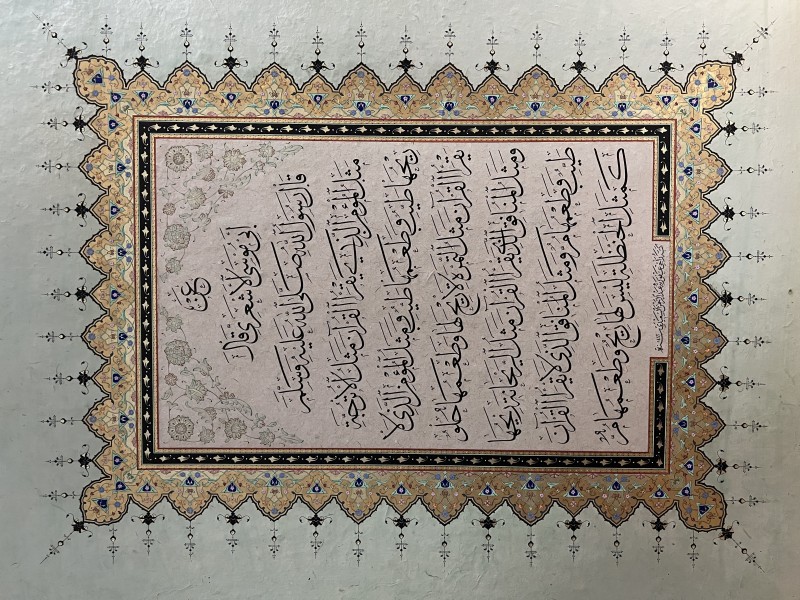 عن
أبي موسى الأشعري قال
قال رسول الله صلى الله عليه وسلم
مثل المؤمن الذي يقرأ القرآن مثل الأترجة
ريحها طيب وطعمها طيب ومثل المؤمن الذي لا
يقرأ القرآن مثل التمرة لا ريح لها وطعمها حلو
ومثل المنافق الذي يقرأ القرآن مثل الريحانة ريحها
طيب وطعمها مر ومثل المنافق الذي لا يقرأ القرآن
كمثل الحنظلة ليس لها ريح وطعمها مر